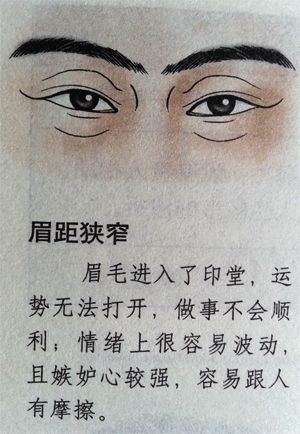 眉距狭窄
眉毛进入了印堂，运
势无法打开，做事不会顺
利；情绪上很容易波动，
且嫉妒心较强，容易跟人
有摩擦。